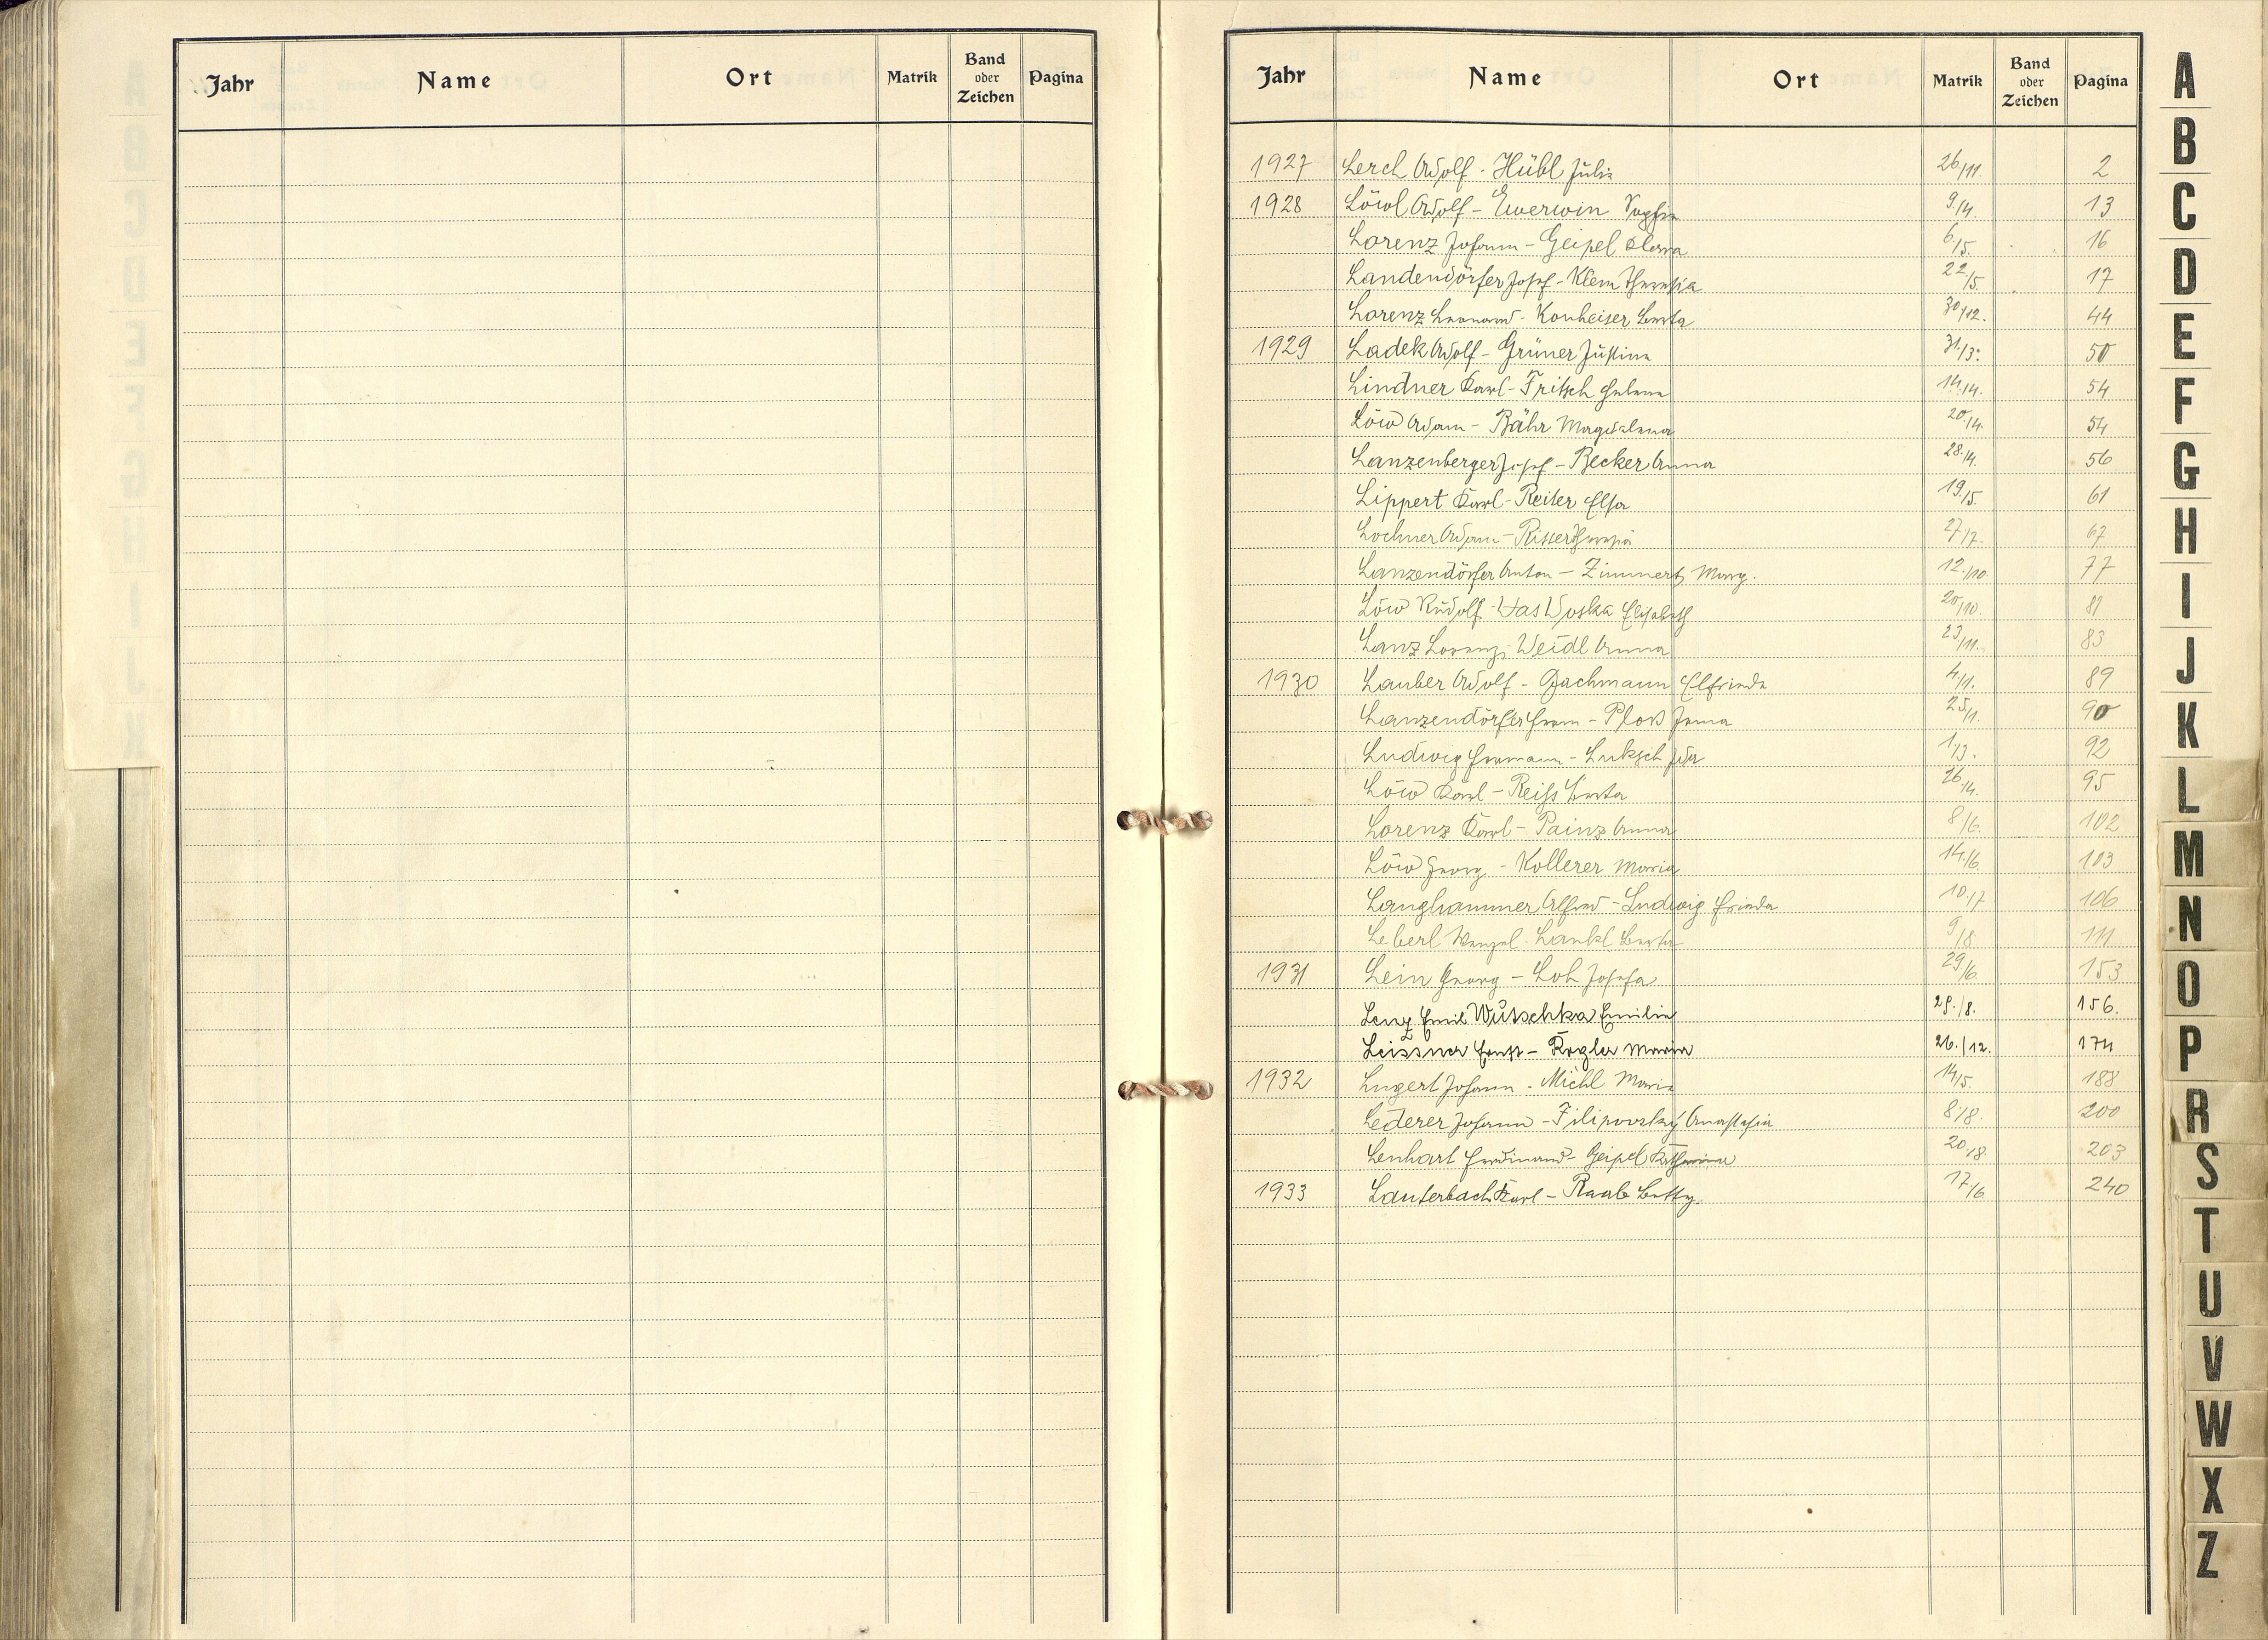 Jahr Name Ort Matrik Band oder Zeichen Pagina
Jahr Name Ort Matrik Band oder Zeichen Pagina
1927 Lerch Adolf - Hübl Julie 26/11. 2
1928 Löwl Adolf - Ewerwin Sophie 9./4. 13
Lorenz Johann - Geipel Klara 6/5. 16
Landendörfer Josef - Klem Theresia 22/5. 17
Lorenz Leonard - Konheiser Berta 30/12. 44
1929 Ladek Adolf - Grüner Justine 31./3. 50
Lindner Karl - Fritsch Helene 14./4. 54
Löw Adam - Bähr Magdalena 20./4. 54
Lanzenberger Josef - Becker Anna 28./4. 56
Lippert Karl - Reiter Elsa 19./5. 61
Lochner Adam - Theresia 27/7. 67
Lanzendörfer Anton - Zimmert Marg. 12./10. 77
Löw Rudolf - Elisabeth 20/10. 81
Lanz Lorenz - Weidl Anna 23/11. 83
1930 Lauber Adolf - Bachmann Elfriede 4/1. 89
Lanzendörfer Franz - Ploß Irma 25/1. 90
Ludwig Hermann - Luksch Ida 1/3. 92
Löw Karl - Reiss Berta 26./4. 95
Lorenz Karl - Painz Anna 8/6. 102
Löw Georg - Kollerer Maria 14./6. 103
Langhammer Alfred - Ludwig Frieda 10/7 106
Leberl Wenzel - Lankl Berta 9/8. 111
1931 Lein Georg - Loh Josefa 29/6. 153
Lenz Emil Wutschka Emilie 29./8. 156.
Leissner Ernst - Rogler Maria 26./12. 174
1932 Lugert Johann - Michl Marie 14/5. 188
Lederer Johann - Filipovsky Anastasia 8/8. 200
Lenhart Ferdinand - Geipel Katharina 20/8. 203
1933 Lauterbach Karl - Raab Betty. 17/6 240
A
B
C
D
E
F
G
H
I
J
K
L
M
N
O
P
R
S
T
U
V
W
X
Z